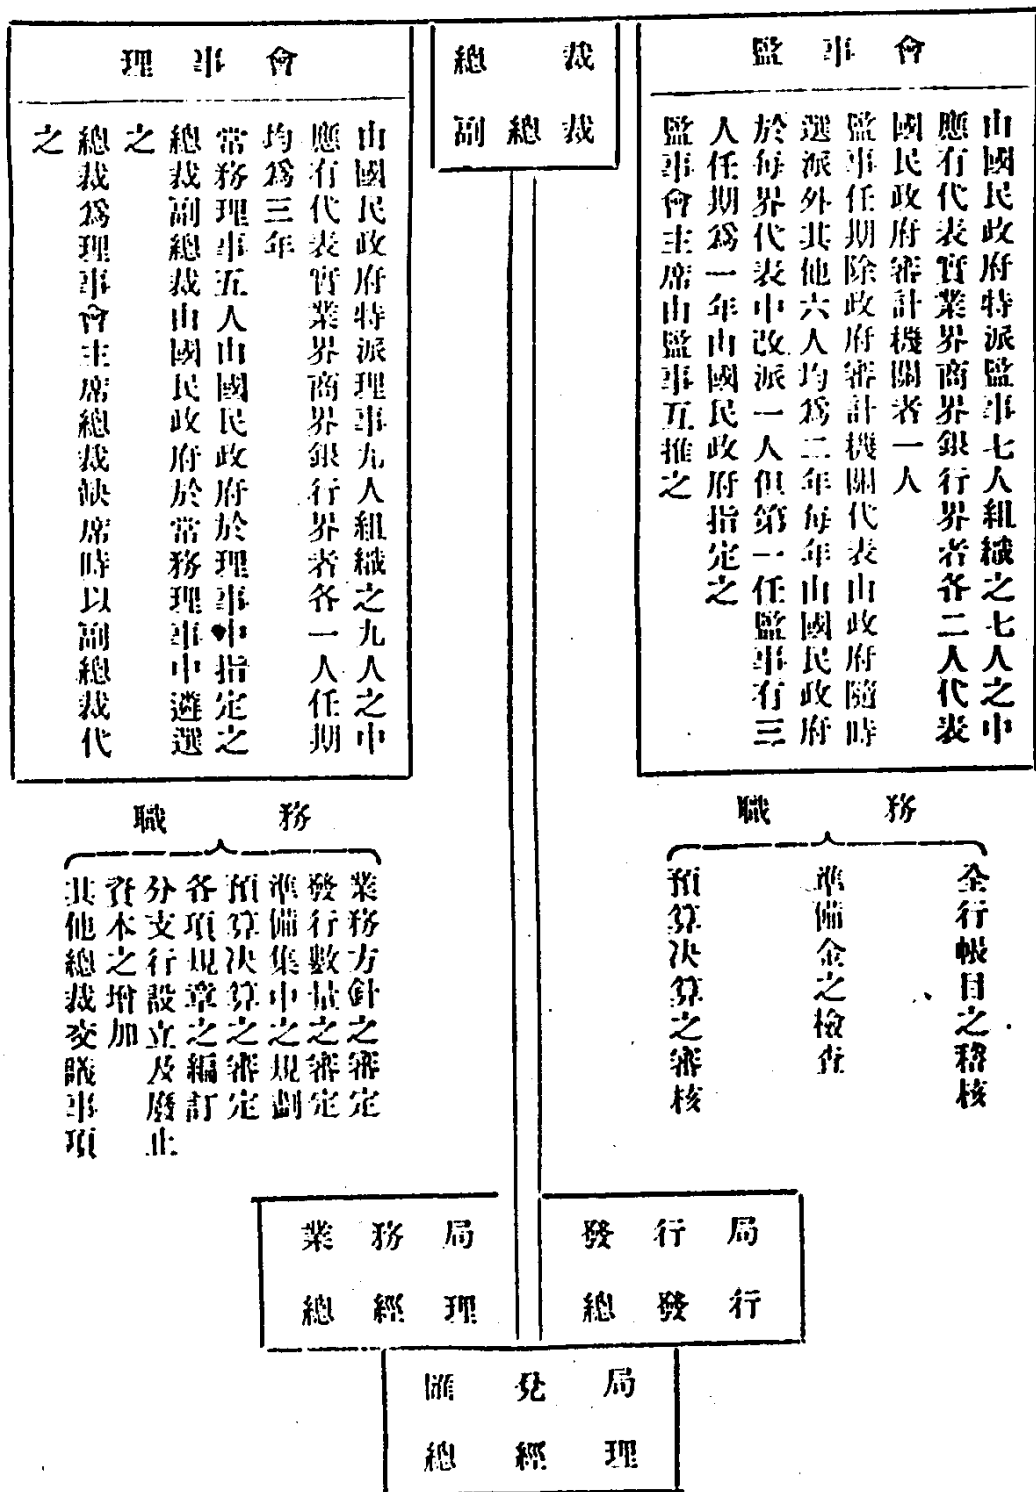 監事會
由國民政府特派監事七人組織之七人之中
應有代表實業界商界銀行界者各二人代表
國民政府審計機關者一人
監事任期除政府審計機關代表由政府隨時
選派外其他六人均爲二年每年由國民政府
於每界代表中改派一人但第一任監事有三
人任期爲一年由國民政府指定之
監事會主席由監事互推之
職務
全行帳目之稽核
準備金之檢查
預算決算之審核
總裁
副總裁
理事會
由國民政府特派理事九人組織之九人之中
應有代表實業界商界銀行界者各一人任期
均爲三年
常務理事五人由國民政府於理事中指定之
總裁副總裁由國民政府於常務理事中遴選
之
總裁爲理事會主席總裁缺席時以副總裁代
之
職務
業務方針之審定
發行數量之審定
準備集中之規劃
預算決算之審定
各項規章之編訂
分支行設立及廢止
資本之增加
其他總裁交議事項
業務局
總經理
發行局
總發行
匯兌局
總經理